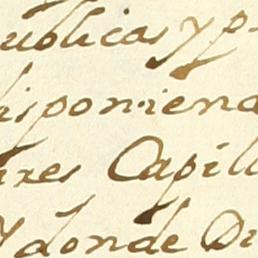 ublicas y p
isponiend
ares Capill
y donde Di